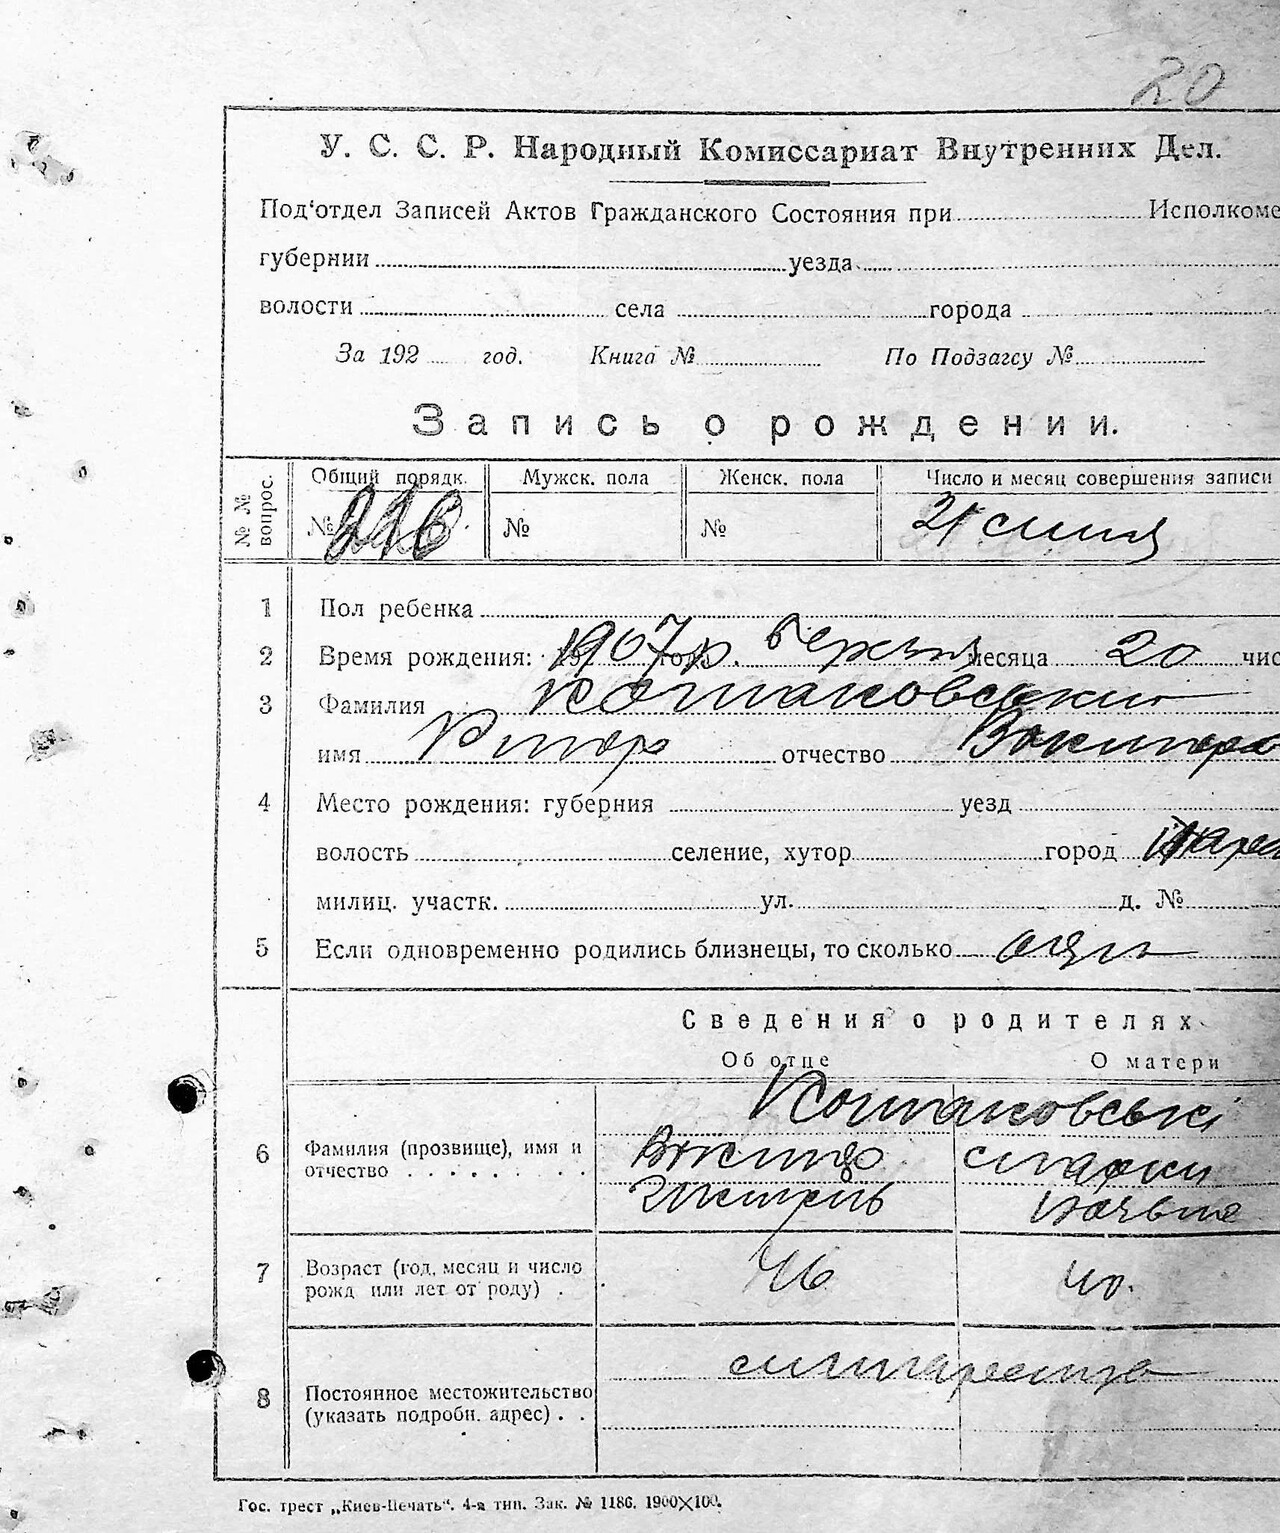 20
У. С. С. Р. Народный Комиссариат Внутренних Дел.
Под‘отдел Записей Актов Гражданского Состояния при Исполкоме
губернии уезда
волости села города
За 192 год. Книга № По Подзагсу №
Запись о рождении.
№ № вопрос. Общий порядк. Мужск. пола Женск. пола Число и месяц совершения записи
№ 216 № № 21 січня
1 Пол ребенка
2 Время рождения: 1907 р. березня месяца 20 чис
3 Фамилия
имя отчество
4 Место рождения: губерния уезд
волость селение, хутор город
милиц. участк. ул. д. №
5 Если одновременно родились близнецы, то сколько один
Сведения о родителях
Об отце О матери
6 Фамилия (прозвище), имя и
отчество
7 Возраст (год, месяц и число 46 40.
рожд или лет от роду) .
8 Постоянное местожительство
(указать подробн. адрес) . .
Гос. трест „Киев-Печать“. 4-я тип. Зак. № 1186. 1900×100.